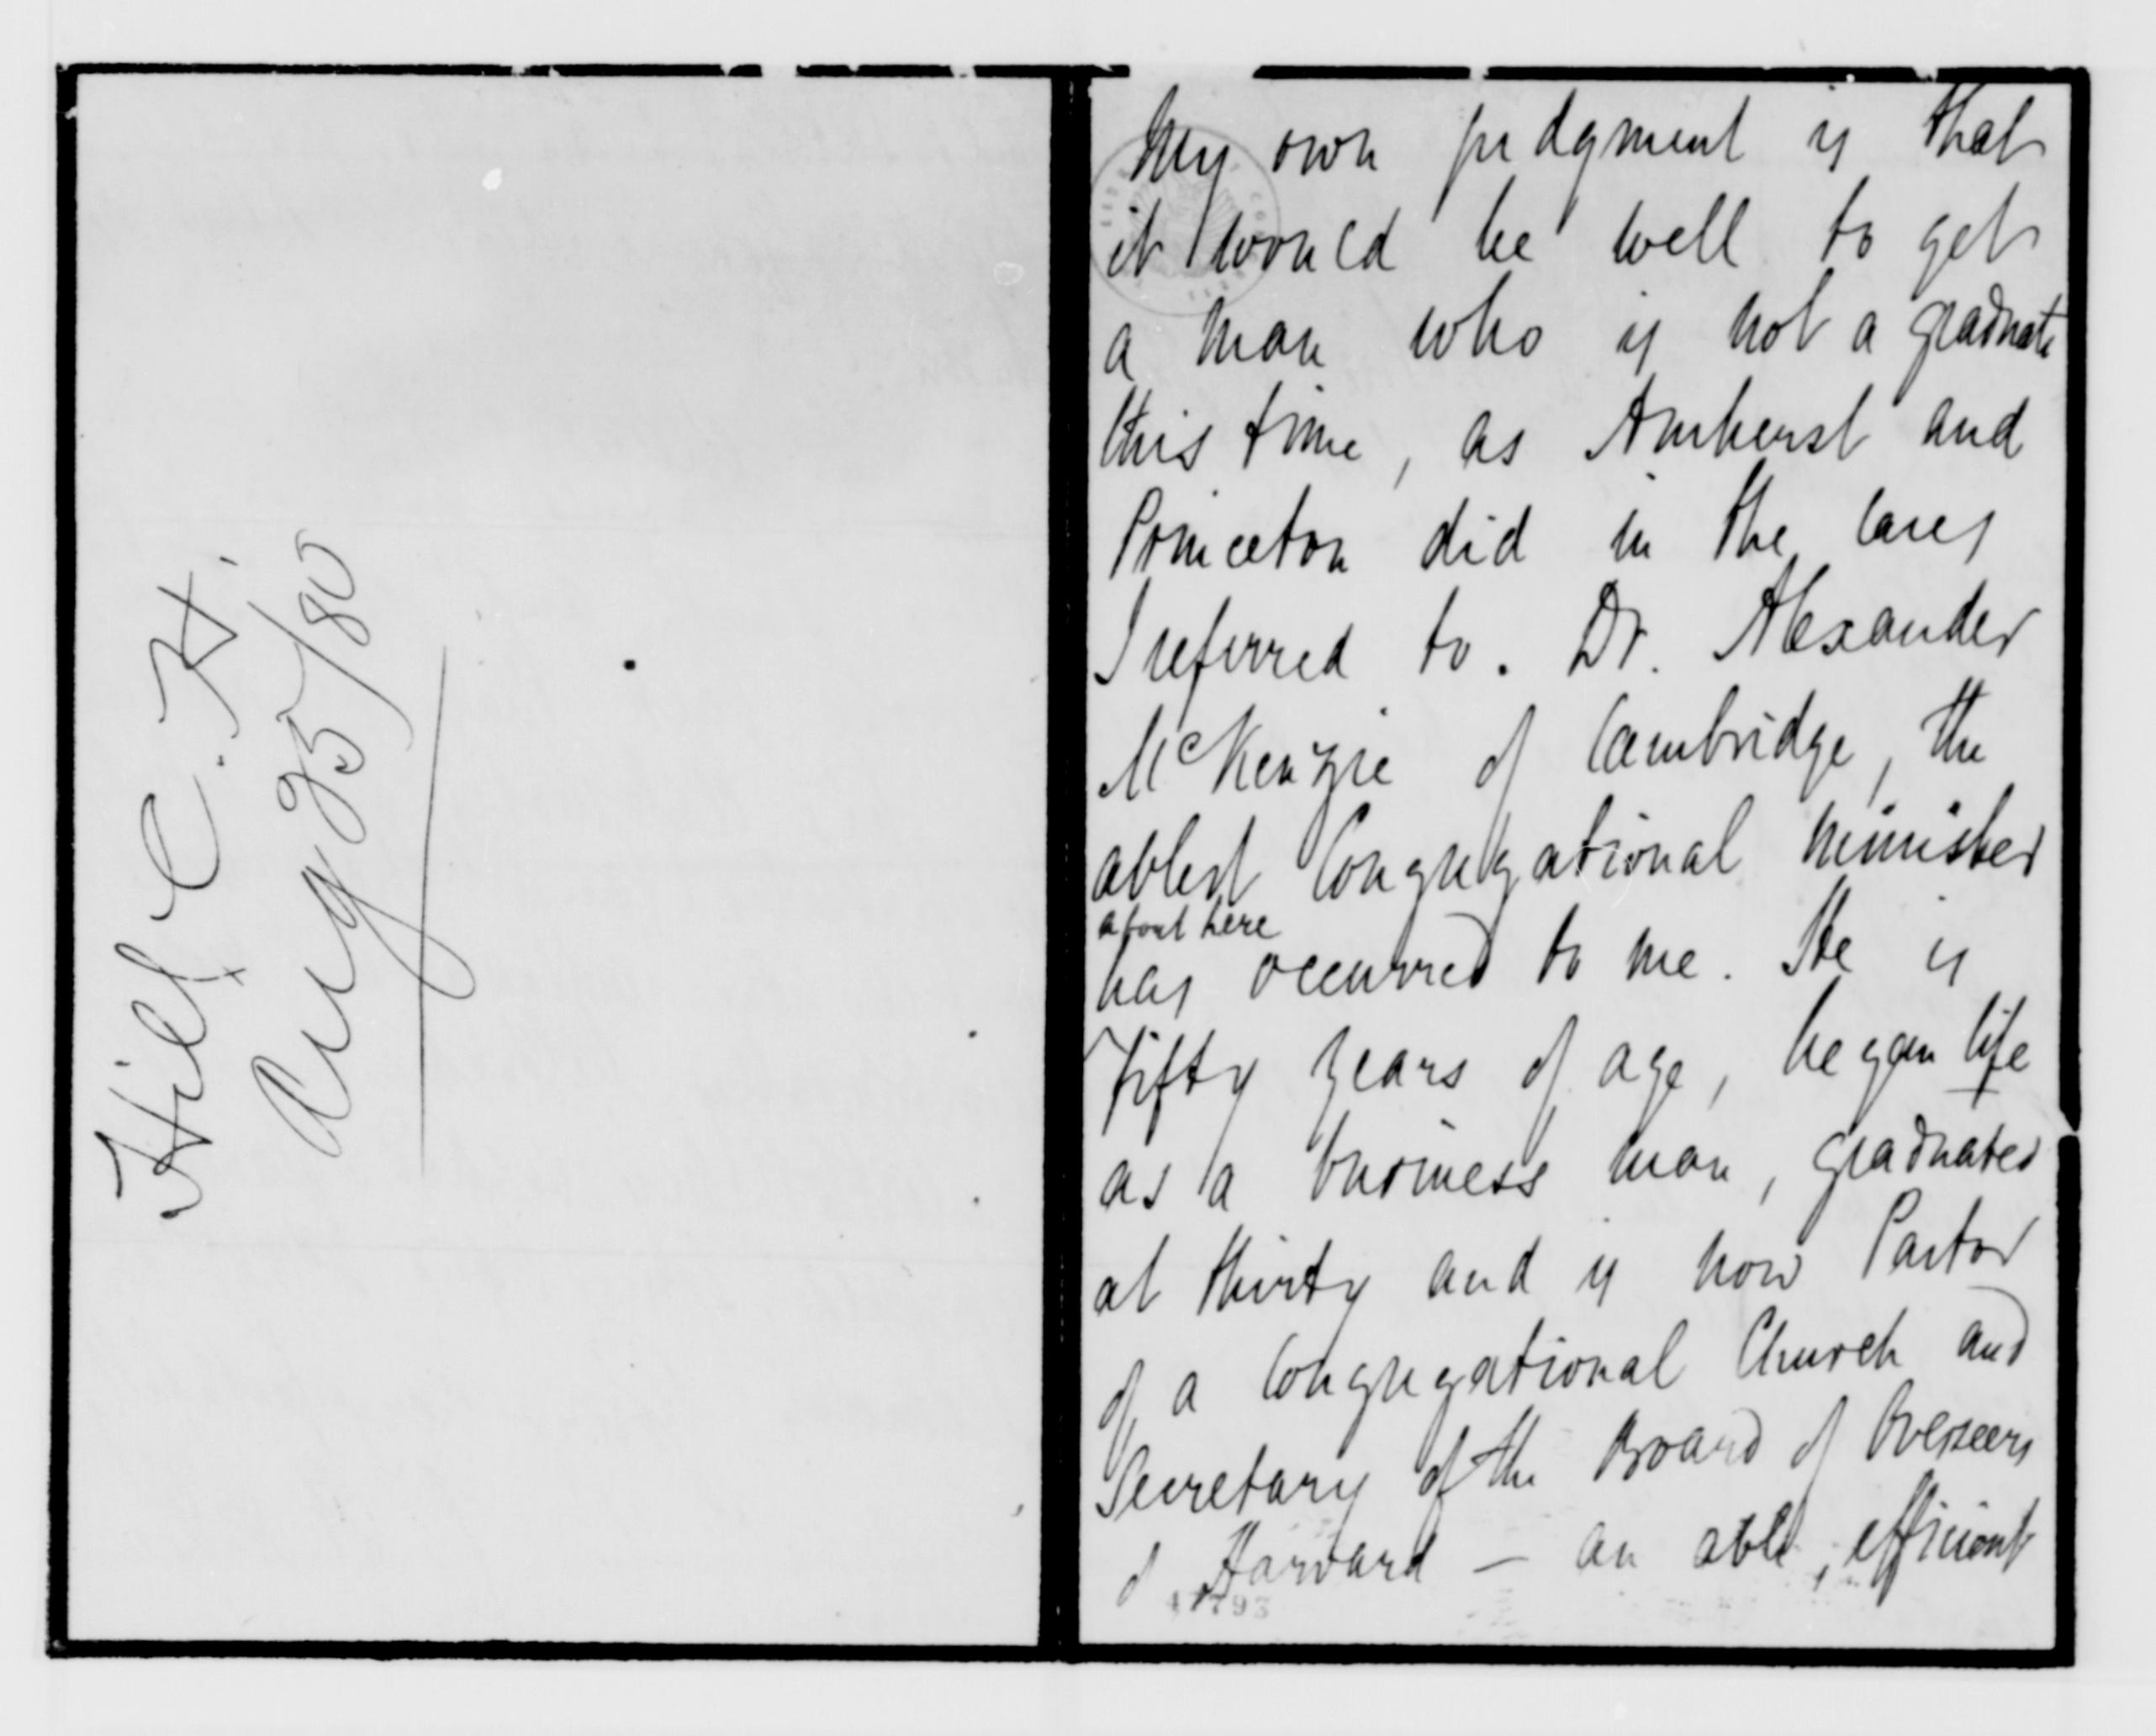 Hill C. H.
Aug 25/80
My own judgment is that
it would be well to get
a man who is not a graduate
this time, as Amherst and
Princeton did in the cases
I referred to. Dr. Alexander
McKenzie of Cambridge, the
ablest Congregational minister
about here
has occurred to me. He is
fifty years of age, began life
as a business man, graduated
at thirty and is now Pastor
of a Congregational Church and
Secretary of the Board of Overseers
of Harvard — an able, efficient